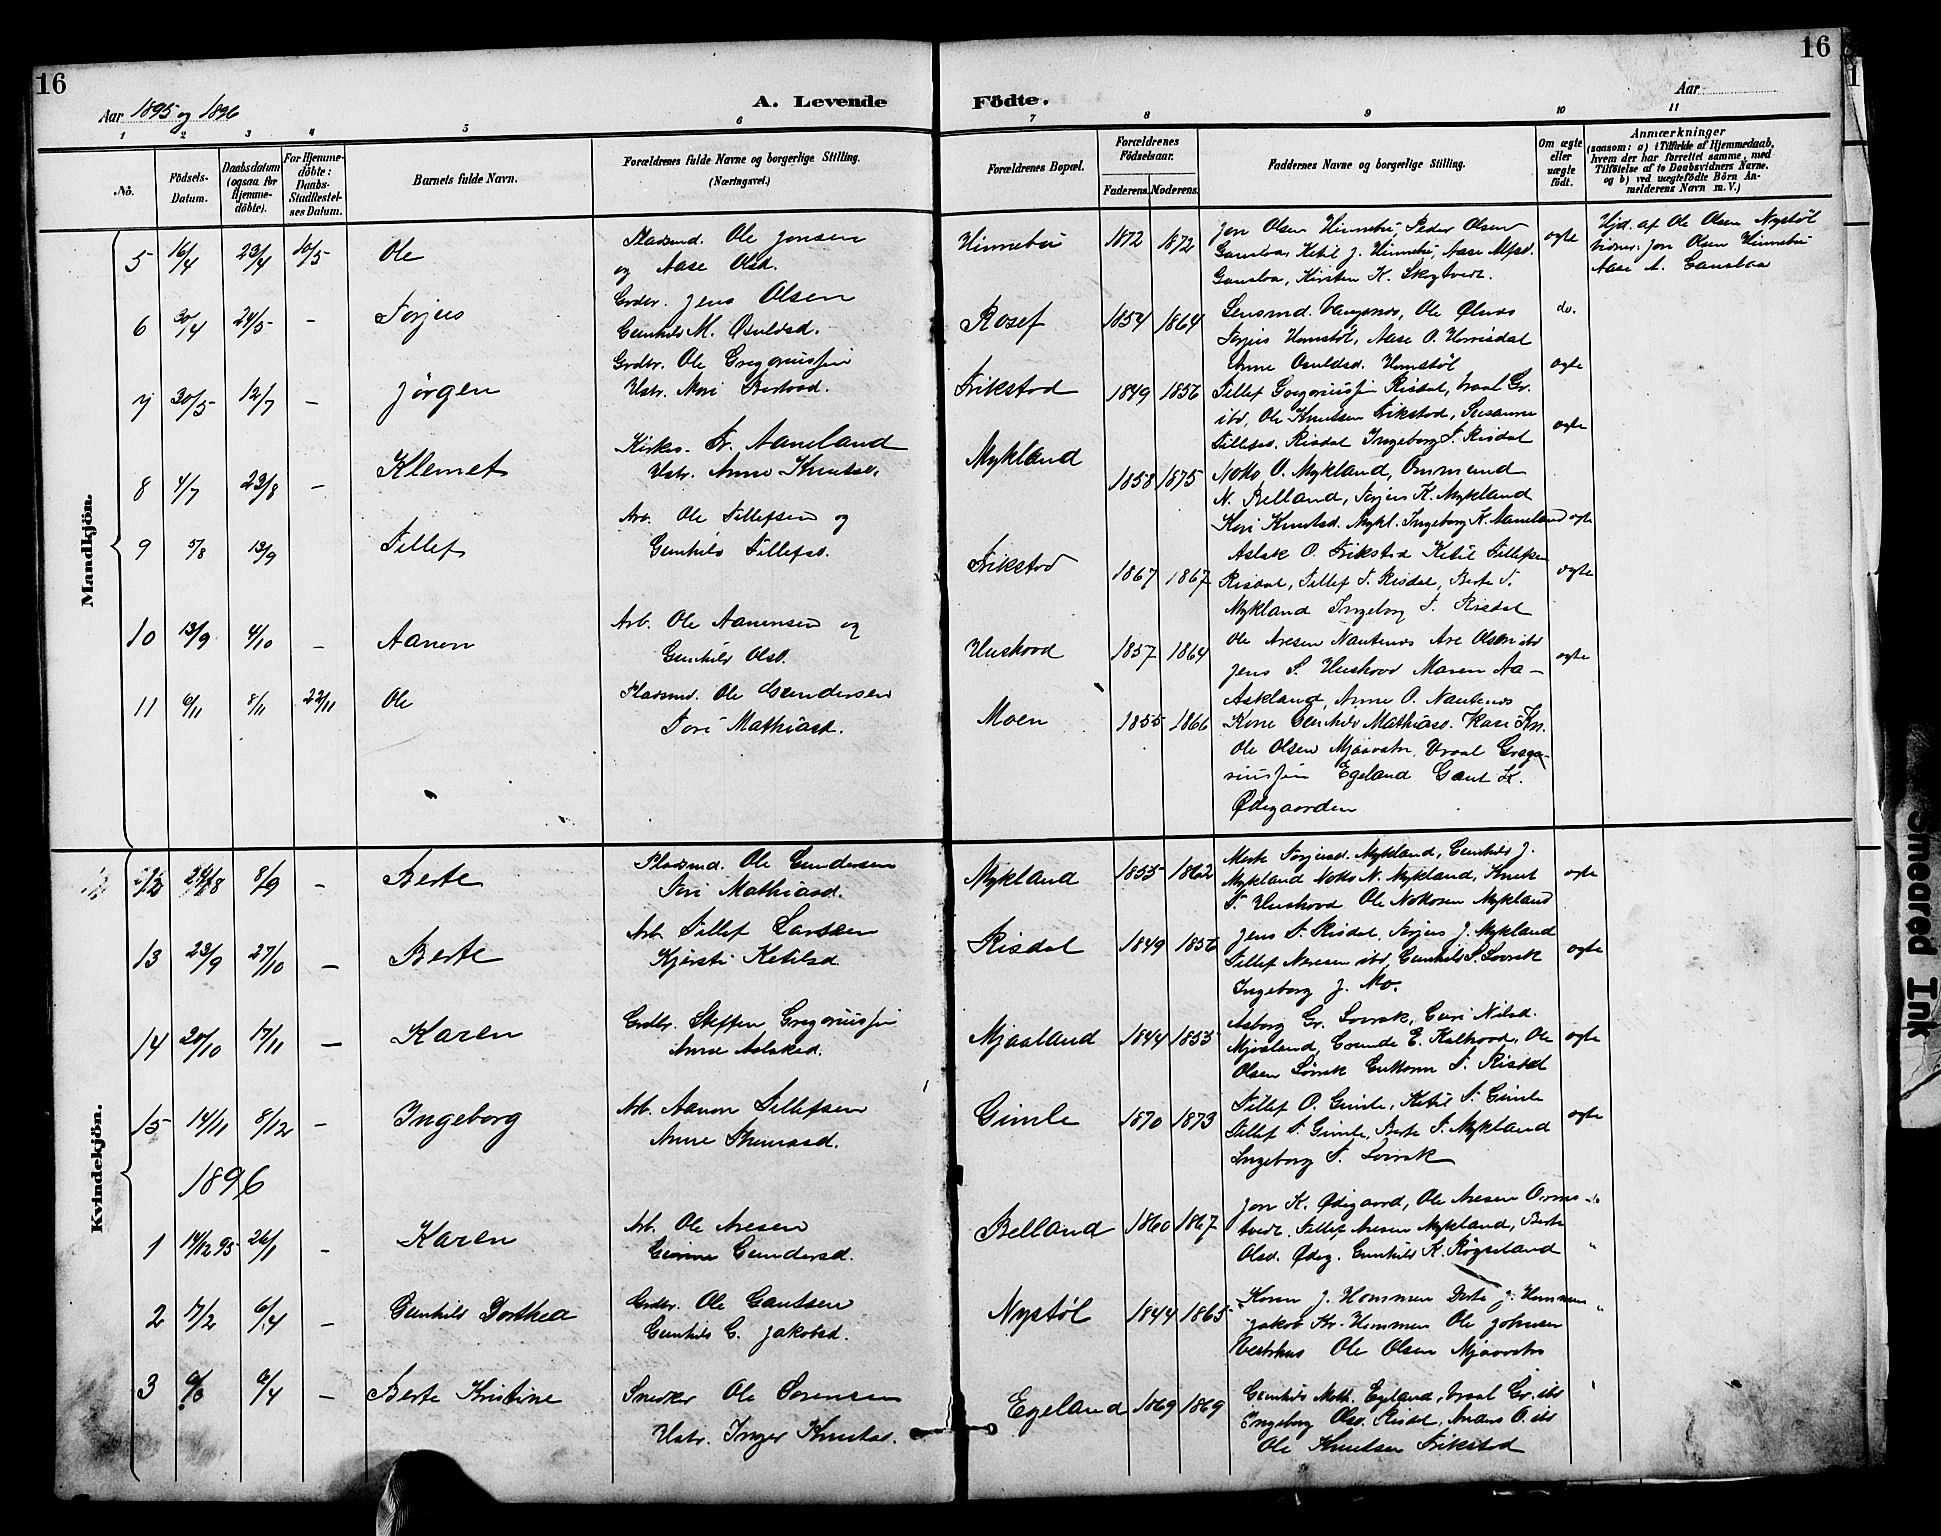 16
16
Aar 1895 og 1896
A. Levende Födte.
Aar
1 2 3 4 5 6 7 8 9 10 11
No.
Födsels-Datum.
Daabsdatum (ogsaa for Hjemme-döbte).
For Hjemme-döbte: Daabs-Stadfæstel-ses Datum.
Barnets fulde Navn.
Forældrenes fulde Navne og borgerlige Stilling.
(Næringsvei.)
Forældrenes Bopæl.
Forældrenes Födselsaar.
Faderens. Moderens.
Faddernes Navne og borgerlige Stilling.
Om ægte eller uægte födt.
Anmærkninger
(saasom: a) i Tilfælde af Hjemmedaab,
hvem der har forrettet samme, med
Tilföielse af to Daabsvidners Navne.
og b) ved uægtefödte Börn An-
melderens Navn m. V.)
Mandkjön.
5 16/4 23/4 10/5 Ole
Pladsmd. Ole Jonsen
og Aase Olsd.
Hinnebu 1872 1872
Jon Olsen Hinnebu, Peder Olsen
Ganslaa, Ketil J. Hinnebu, Aase Alfsd.
Ganslaa, Kirsten K. Skogtvedt.
ægte
Hjd. af Ole Olsen Nystøl
Vidner: Jon Olsen Hinnebu
Aase A. Ganslaa
6 30/4 24/5 - Torjus
Grdbr. Jens Olsen
Gunhild M. Osuldsd.
Rosef 1854 1864
Lensmd. Vangsnes, Ole Ølnes
Torjus Homstøl, Aase O. Horrisdal
Anne Osuldsd. Homstøl
do.
7 30/5 12/7 - Jörgen
Grdbr. Ole Gregoriussen
Hstr. Mari Bertovd.
Trikstad 1849 1856
Tellef Gregoriussen Risdal, Vraal Gr.
ibd, Ole Knutsen Trikstad, Susanne
Tellefsd. Risdal Ingeborg T. Risdal
ægte
8 4/7 23/8 - Klemet
Kirkes. Tr. Aaneland
Hstr. Anne Knutsd.
Mykland 1858 1875
Notto O. Mykland, Ommund
N. Belland, Torjus K. Mykland
Kari Knutsd. Mykl. Ingeborg K. Aaneland
ægte
9 5/8 13/9 Tellef
Arb. Ole Tellefsen og
Gunhild Tellefsd.
Trikstad 1867 1867
Aslak O. Trikstad Ketil Tellefsen
Risdal, Tellef T. Risdal, Berte T.
Mykland Ingeborg T. Risdal
ægte
10 13/9 4/10 - Aanon
Arb. Ole Aanonsen og
Gunhild Olsd.
Huskvad 1857 1864
Ole Aresen Nautenes Are Olsen ibd
Jens S. Huskvad Maren Aa-
Askland, Anne O. Nautenes
ægte
11 6/11 8/11 22/11 Ole
Pladsmd. Ole Gundersen
Tori Mathiasd.
Moen 1855 1866
Kone Gunhild Mathiasd. Kari Kn.
Ole Olsen Mjaavatn, Vraal Grego-
riussen Egeland Gaut K.
Ødegaarden
Kvindekjön.
12 24/8 8/9 - Berte
Pladsmd. Ole Gundersen
Tori Mathiasd.
Mykland 1855 1862
Marte Torjusd. Mykland, Gunhild J.
Mykland Notto N. Mykland, Knut
T. Huskvad Ole Nottosen Mykland
ægte
13 23/9 27/10 - Berte
Arb. Tellef Larsen
Kjersti Ketilsd
Risdal 1849 1856
Jens T. Risdal, Torjus J. Mykland
Tellef Aresen ibd, Gunhild T. Lovrak
Ingeborg J. Mo.
ægte
14 20/10 17/11 - Karen
Grdbr. Steffen Gregoriussen
Anne Aslaksd.
Mjaaland 1844 1853
Asborg Gr. Lovrak, Guri Nilsd.
Mjaaland, Gunde E. Kalhovd, Ole
Olsen Lovrak Guttorm T. Risdal
ægte
15 14/11 8/12 - Ingeborg
Arb. Aanon Tellefsen
Anne Thomasd.
Gimle 1870 1873
Tellef O. Gimle, Ketil T. Gimle
Tellef T. Gimle, Berte T. Mykland
Ingeborg T. Lovrak
ægte
1896
1 14/12 95 26/1 - Karen
Arb. Ole Aresen
Gunne Gundersd.
Belland 1860 1867
Jon K. Ødegaard, Ole Aresen Orms-
tvedt, Tellef Aresen Mykland, Berte
Olsd. Ødeg. Gunhild K. Røyseland
"
2 17/2 6/4 - Gunhild Dorthea
Grdbr. Ole Gautsen
Gunhild G. Jakobsd.
Nystøl 1844 1865
Karen J. Hommen Berte J. Hommen
Jakob Kr. Hommen Ole Johnsen
Vestshus Ole Olsen Mjaavatn
"
3 6/3 6/4 - Berte Kristine
Snedker Ole Sørensen
Hstr. Inger Knutsd.
Egeland 1869 1869
Gunhild Math. Egeland, Vraal Gr. ibd
Ingeborg Olsd. Risdl, Anders O. ibd
Ole Knutsen Trikstad
Smeared Ink